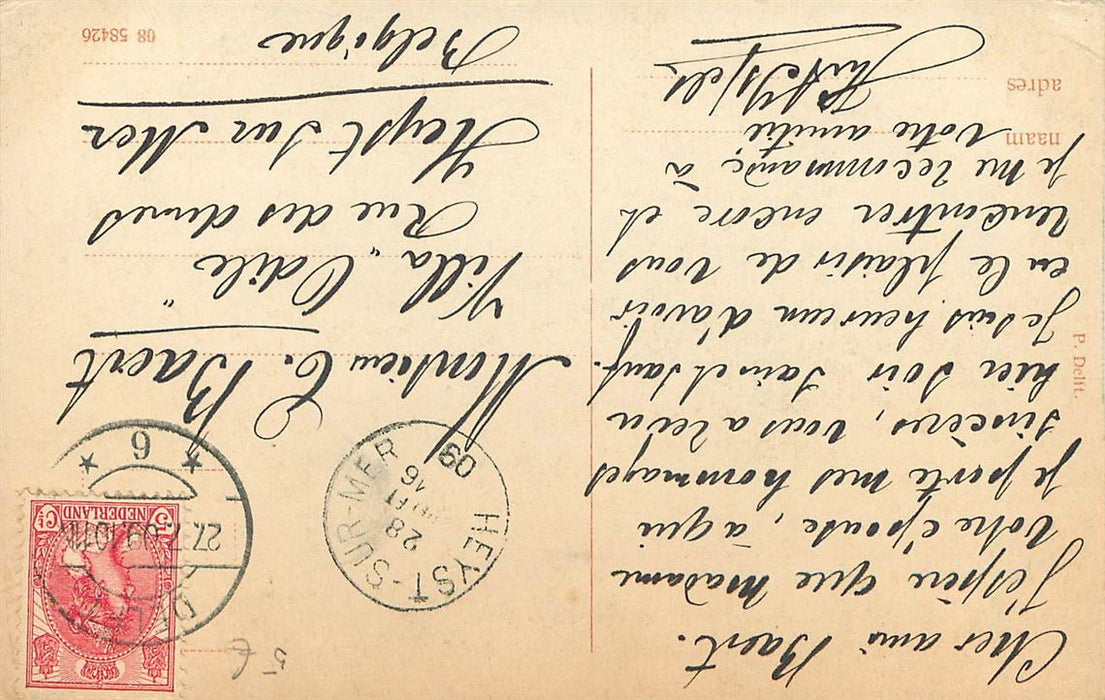 Cher ami Baert.
J'espère que Madame
votre épouse, à qui
je porte mes hommages
sincères, vous a revu
hier soir sain et sauf.
Je suis heureux d'avoir
eu le plaisir de vous
rencontrer encore et
je me recommande à
votre amitié
naam
adres
P. Delft.
NEDERLAND
5 Ct
27.7.09
6
HEYST-SUR-MER
28
16
09
Monsieur C. Baert
Villa „Odile"
Rue des dunes
Heyst sur Mer
Belgique
08 58426